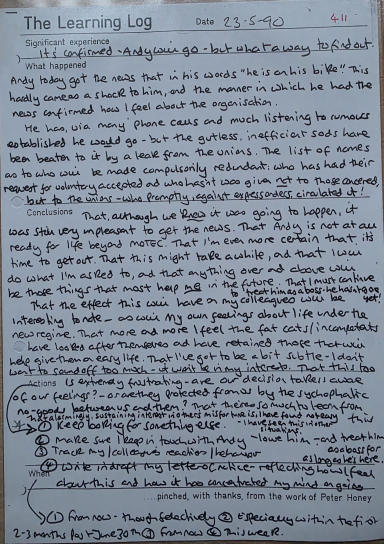 The Learning Log Date 23-5-90 411
Significant experience
It's confirmed - Andy will go - but what a way to find out.
What happened
Andy today got the news that in his words "he is on his bike". This
hardly came as a shock to him, and the manner in which he had the
news confirmed how I feel about the organisation.
He has, via many phone calls and much listening to rumours
established he would go - but the gutless, inefficient sods have
been beaten to it by a leak from the unions. The list of names
as to who will be made compulsorily redundant, who has had their
request for voluntary accepted and who hasn't was given not to those concerned,
but to the unions - who promptly, against express orders, circulated it!
Conclusions That, although we knew it was going to happen, it
was still very unpleasant to get the news. That Andy is not at all
ready for life beyond MOTEC. That I'm even more certain that it's
time to get out. That this might take a while, and that I will
do what I'm asked to, and that anything over and above will
be those things that most help me in the future. That I must continue
to treat him as a boss - he hasn't gone yet!
That the effect this will have on my colleagues will be
interesting to note - as will my own feelings about life under the
new regime. That more and more I feel the fat cats/incompetents
have looked after themselves and have retained those that will
help give them an easy life. That I've got to be a bit subtle - I don't
want to sound off too much - it won't be in my interests. That this too
Actions is extremely frustrating - are our decision takers aware
of our feelings? - or are they protected from us by the sycophantic
no-goods between us and them? That there's so much to learn from
this alarmingly, sustaining interest in others misfortune is I have found not easy
- I have seen this in other situations
① Keep looking for something else.
② Make sure I keep in touch with Andy - I owe him - and treat him
as a boss for as long as he's here.
③ Track my/colleagues reactions/behaviour
④ Write in draft my letter of notice - reflecting how I feel
When about this and how it has concentrated my mind
....pinched, with thanks, from the work of Peter Honey
① From now - though selectively ② Especially within the first
2-3 months post June 30th ③ From now ④ This week.